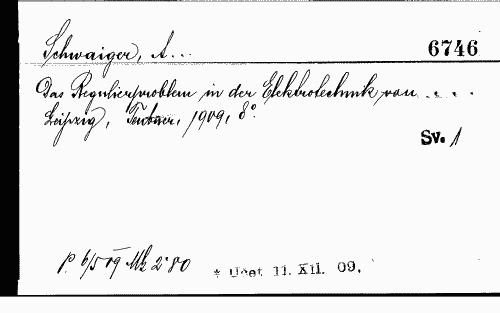 Schwaiger, A...
6746
Das Regulierproblem in der Elektrotechnik von . . . .
Leipzig, Teubner, 1909, 8°.
Sv. 1
P. 6/5 09 Mk 2·80
* Učet 11. XII. 09.